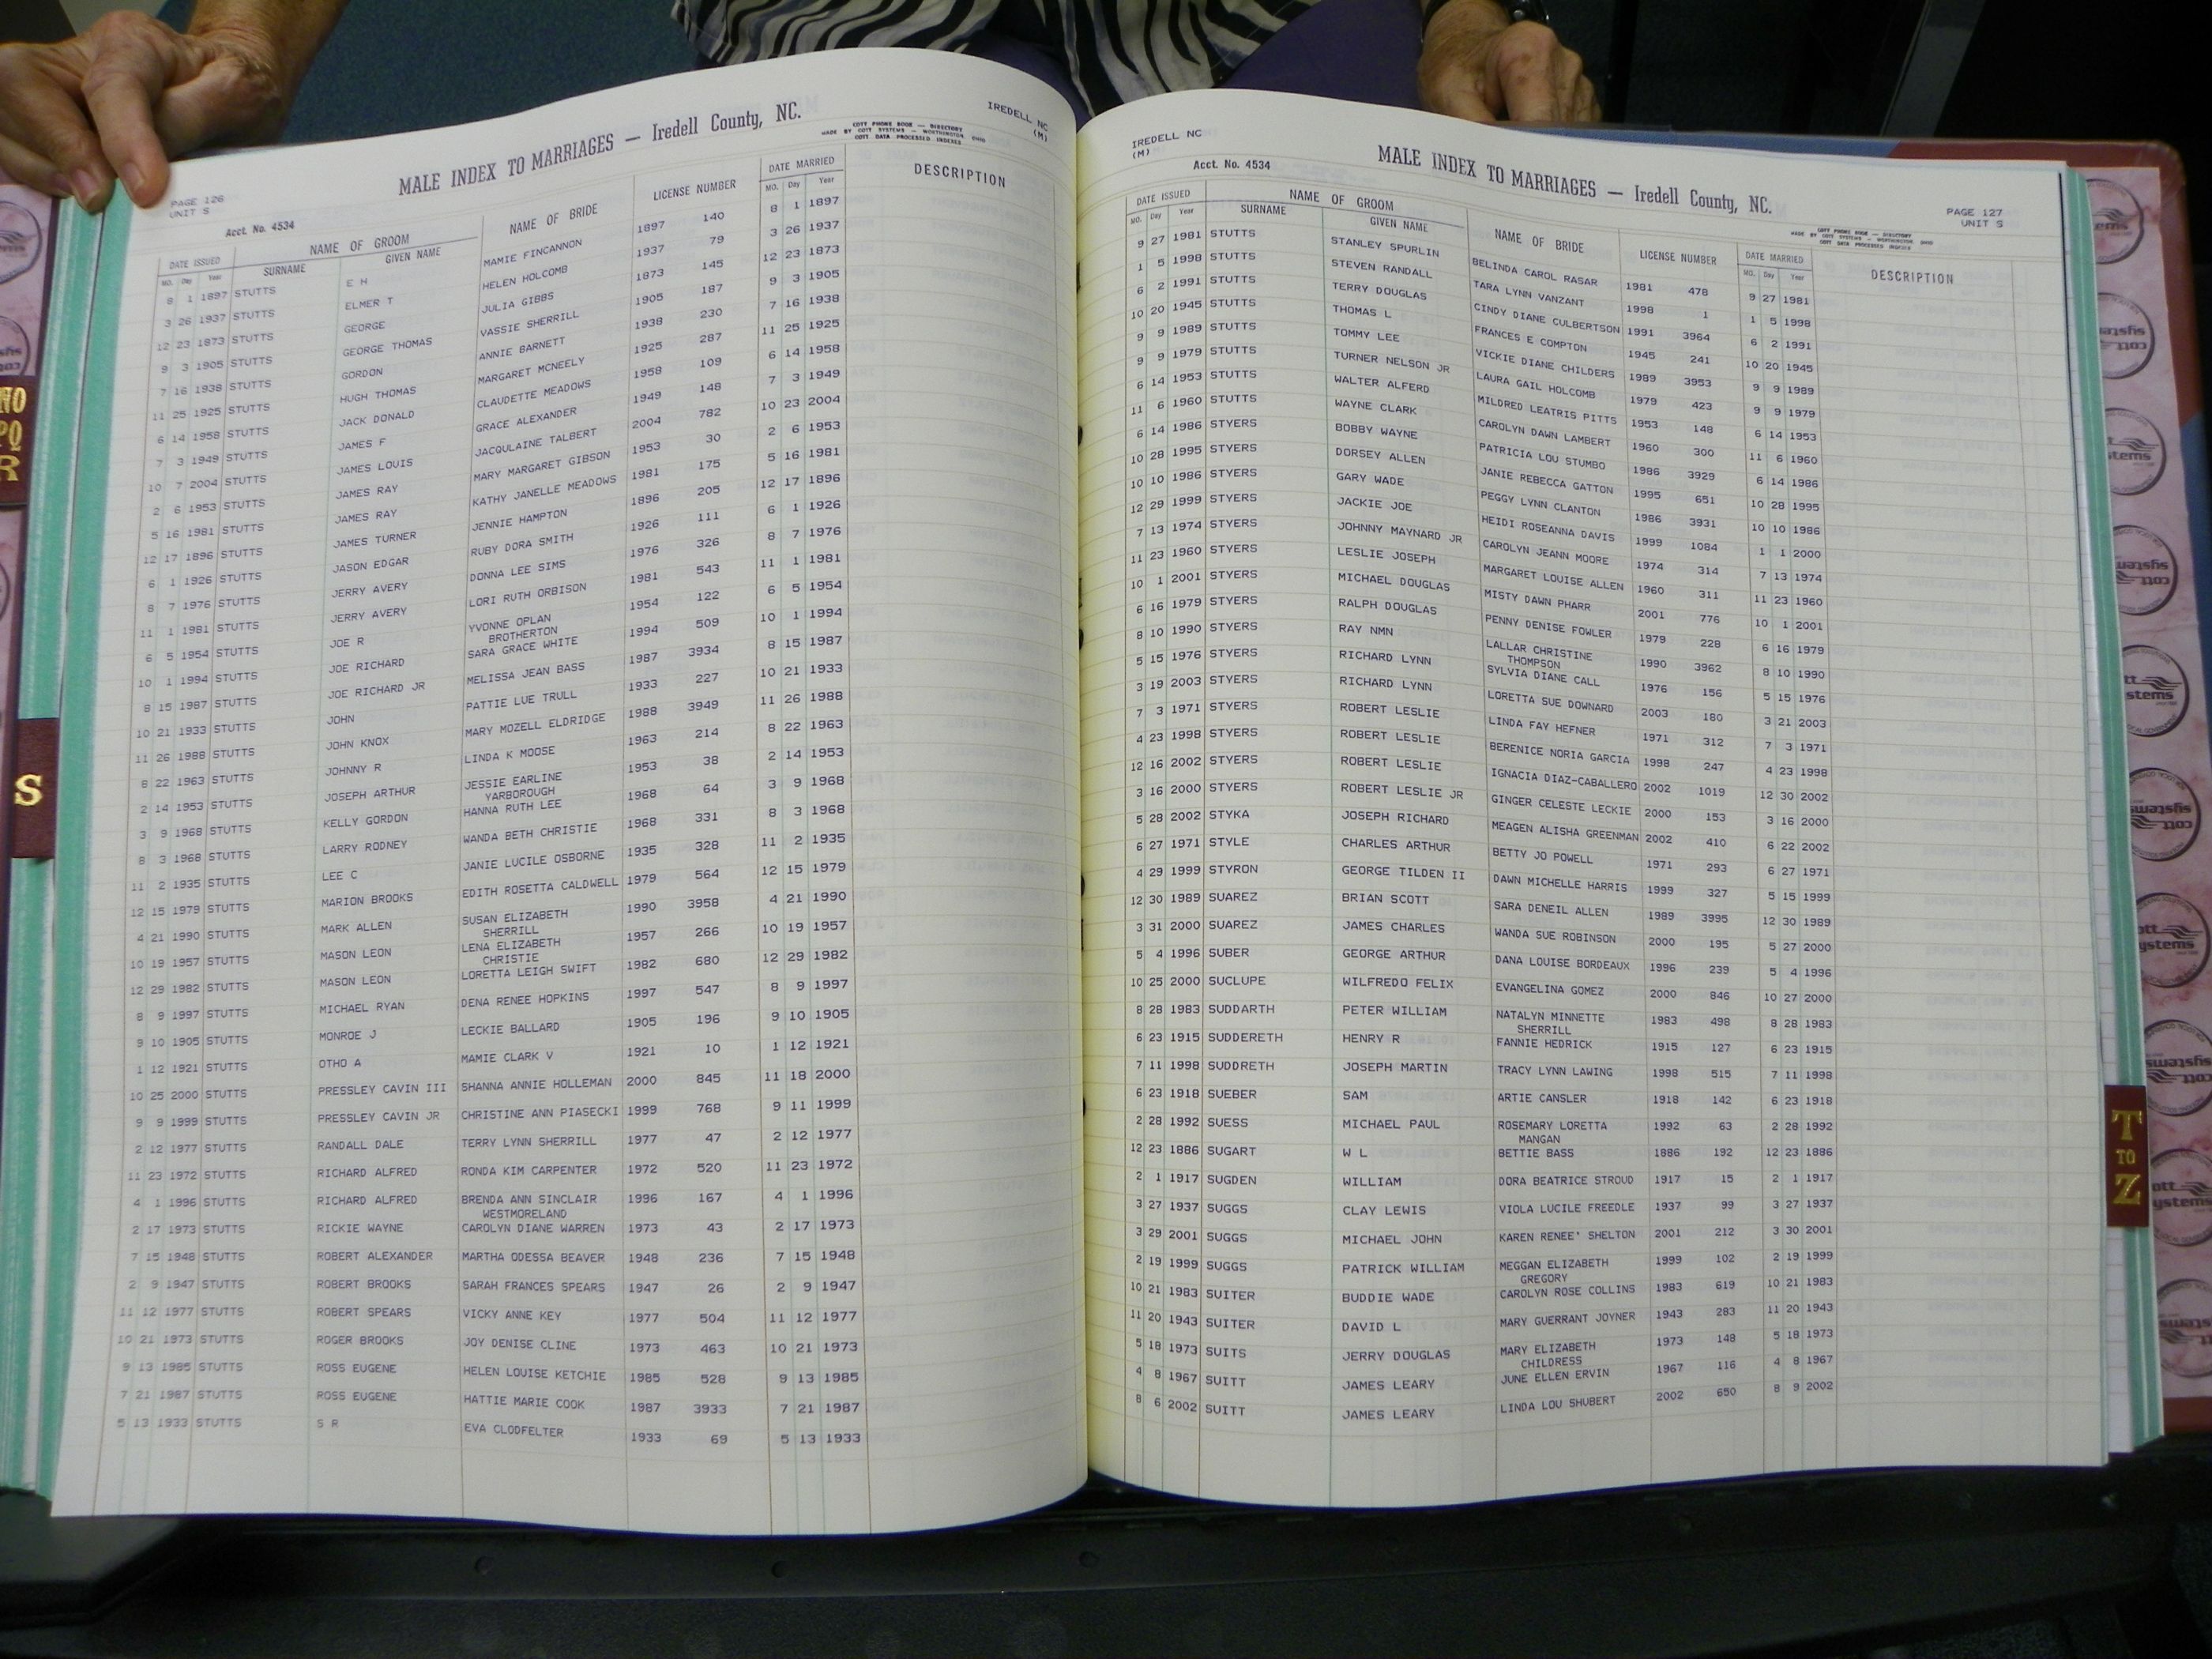 IREDELL NC
(M)
MALE INDEX TO MARRIAGES — Iredell County, NC.
COTT PHONE BOOK — DIRECTORY
MADE BY COTT SYSTEMS — WORTHINGTON OHIO
COTT DATA PROCESSED INDEXES
PAGE 126
UNIT S
Acct. No. 4534
DATE ISSUED NAME OF GROOM NAME OF BRIDE LICENSE NUMBER DATE MARRIED DESCRIPTION
MO. Day Year SURNAME GIVEN NAME MO. Day Year
8 1 1897 STUTTS E H MAMIE FINCANNON 1897 140 8 1 1897
3 26 1937 STUTTS ELMER T HELEN HOLCOMB 1937 79 3 26 1937
12 23 1873 STUTTS GEORGE JULIA GIBBS 1873 145 12 23 1873
9 3 1905 STUTTS GEORGE THOMAS VASSIE SHERRILL 1905 187 9 3 1905
7 16 1938 STUTTS GORDON ANNIE BARNETT 1938 230 7 16 1938
11 25 1925 STUTTS HUGH THOMAS MARGARET MCNEELY 1925 287 11 25 1925
6 14 1958 STUTTS JACK DONALD CLAUDETTE MEADOWS 1958 109 6 14 1958
7 3 1949 STUTTS JAMES F GRACE ALEXANDER 1949 148 7 3 1949
10 7 2004 STUTTS JAMES LOUIS JACQULAINE TALBERT 2004 782 10 23 2004
2 6 1953 STUTTS JAMES RAY MARY MARGARET GIBSON 1953 30 2 6 1953
5 16 1981 STUTTS JAMES RAY KATHY JANELLE MEADOWS 1981 175 5 16 1981
12 17 1896 STUTTS JAMES TURNER JENNIE HAMPTON 1896 205 12 17 1896
6 1 1926 STUTTS JASON EDGAR RUBY DORA SMITH 1926 111 6 1 1926
8 7 1976 STUTTS JERRY AVERY DONNA LEE SIMS 1976 326 8 7 1976
11 1 1981 STUTTS JERRY AVERY LORI RUTH ORBISON 1981 543 11 1 1981
6 5 1954 STUTTS JOE R YVONNE OPLAN 1954 122 6 5 1954
BROTHERTON
10 1 1994 STUTTS JOE RICHARD SARA GRACE WHITE 1994 509 10 1 1994
8 15 1987 STUTTS JOE RICHARD JR MELISSA JEAN BASS 1987 3934 8 15 1987
10 21 1933 STUTTS JOHN PATTIE LUE TRULL 1933 227 10 21 1933
11 26 1988 STUTTS JOHN KNOX MARY MOZELL ELDRIDGE 1988 3949 11 26 1988
8 22 1963 STUTTS JOHNNY R LINDA K MOOSE 1963 214 8 22 1963
2 14 1953 STUTTS JOSEPH ARTHUR JESSIE EARLINE 1953 38 2 14 1953
YARBOROUGH
3 9 1968 STUTTS KELLY GORDON HANNA RUTH LEE 1968 64 3 9 1968
8 3 1968 STUTTS LARRY RODNEY WANDA BETH CHRISTIE 1968 331 8 3 1968
11 2 1935 STUTTS LEE C JANIE LUCILE OSBORNE 1935 328 11 2 1935
12 15 1979 STUTTS MARION BROOKS EDITH ROSETTA CALDWELL 1979 564 12 15 1979
4 21 1990 STUTTS MARK ALLEN SUSAN ELIZABETH 1990 3958 4 21 1990
SHERRILL
10 19 1957 STUTTS MASON LEON LENA ELIZABETH 1957 266 10 19 1957
CHRISTIE
12 29 1982 STUTTS MASON LEON LORETTA LEIGH SWIFT 1982 680 12 29 1982
8 9 1997 STUTTS MICHAEL RYAN DENA RENEE HOPKINS 1997 547 8 9 1997
9 10 1905 STUTTS MONROE J LECKIE BALLARD 1905 196 9 10 1905
1 12 1921 STUTTS OTHO A MAMIE CLARK V 1921 10 1 12 1921
10 25 2000 STUTTS PRESSLEY CAVIN III SHANNA ANNIE HOLLEMAN 2000 845 11 18 2000
9 9 1999 STUTTS PRESSLEY CAVIN JR CHRISTINE ANN PIASECKI 1999 768 9 11 1999
2 12 1977 STUTTS RANDALL DALE TERRY LYNN SHERRILL 1977 47 2 12 1977
11 23 1972 STUTTS RICHARD ALFRED RONDA KIM CARPENTER 1972 520 11 23 1972
4 1 1996 STUTTS RICHARD ALFRED BRENDA ANN SINCLAIR 1996 167 4 1 1996
WESTMORELAND
2 17 1973 STUTTS RICKIE WAYNE CAROLYN DIANE WARREN 1973 43 2 17 1973
7 15 1948 STUTTS ROBERT ALEXANDER MARTHA ODESSA BEAVER 1948 236 7 15 1948
2 9 1947 STUTTS ROBERT BROOKS SARAH FRANCES SPEARS 1947 26 2 9 1947
11 12 1977 STUTTS ROBERT SPEARS VICKY ANNE KEY 1977 504 11 12 1977
10 21 1973 STUTTS ROGER BROOKS JOY DENISE CLINE 1973 463 10 21 1973
9 13 1985 STUTTS ROSS EUGENE HELEN LOUISE KETCHIE 1985 528 9 13 1985
7 21 1987 STUTTS ROSS EUGENE HATTIE MARIE COOK 1987 3933 7 21 1987
5 13 1933 STUTTS S R EVA CLODFELTER 1933 69 5 13 1933
IREDELL NC
(M)
Acct. No. 4534
MALE INDEX TO MARRIAGES — Iredell County, NC.
COTT PHONE BOOK — DIRECTORY
MADE BY COTT SYSTEMS — WORTHINGTON OHIO
COTT DATA PROCESSED INDEXES
PAGE 127
UNIT S
DATE ISSUED NAME OF GROOM NAME OF BRIDE LICENSE NUMBER DATE MARRIED DESCRIPTION
MO. Day Year SURNAME GIVEN NAME MO. Day Year
9 27 1981 STUTTS STANLEY SPURLIN BELINDA CAROL RASAR 1981 478 9 27 1981
1 5 1998 STUTTS STEVEN RANDALL TARA LYNN VANZANT 1998 1 1 5 1998
6 2 1991 STUTTS TERRY DOUGLAS CINDY DIANE CULBERTSON 1991 3964 6 2 1991
10 20 1945 STUTTS THOMAS L FRANCES E COMPTON 1945 241 10 20 1945
9 9 1989 STUTTS TOMMY LEE VICKIE DIANE CHILDERS 1989 3953 9 9 1989
9 9 1979 STUTTS TURNER NELSON JR LAURA GAIL HOLCOMB 1979 423 9 9 1979
6 14 1953 STUTTS WALTER ALFERD MILDRED LEATRIS PITTS 1953 148 6 14 1953
11 6 1960 STUTTS WAYNE CLARK CAROLYN DAWN LAMBERT 1960 300 11 6 1960
6 14 1986 STYERS BOBBY WAYNE PATRICIA LOU STUMBO 1986 3929 6 14 1986
10 28 1995 STYERS DORSEY ALLEN JANIE REBECCA GATTON 1995 651 10 28 1995
10 10 1986 STYERS GARY WADE PEGGY LYNN CLANTON 1986 3931 10 10 1986
12 29 1999 STYERS JACKIE JOE HEIDI ROSEANNA DAVIS 1999 1084 1 1 2000
7 13 1974 STYERS JOHNNY MAYNARD JR CAROLYN JEANN MOORE 1974 314 7 13 1974
11 23 1960 STYERS LESLIE JOSEPH MARGARET LOUISE ALLEN 1960 311 11 23 1960
10 1 2001 STYERS MICHAEL DOUGLAS MISTY DAWN PHARR 2001 776 10 1 2001
6 16 1979 STYERS RALPH DOUGLAS PENNY DENISE FOWLER 1979 228 6 16 1979
8 10 1990 STYERS RAY NMN LALLAR CHRISTINE 1990 3962 8 10 1990
THOMPSON
5 15 1976 STYERS RICHARD LYNN SYLVIA DIANE CALL 1976 156 5 15 1976
3 19 2003 STYERS RICHARD LYNN LORETTA SUE DOWNARD 2003 180 3 21 2003
7 3 1971 STYERS ROBERT LESLIE LINDA FAY HEFNER 1971 312 7 3 1971
4 23 1998 STYERS ROBERT LESLIE BERENICE NORIA GARCIA 1998 247 4 23 1998
12 16 2002 STYERS ROBERT LESLIE IGNACIA DIAZ-CABALLERO 2002 1019 12 30 2002
3 16 2000 STYERS ROBERT LESLIE JR GINGER CELESTE LECKIE 2000 153 3 16 2000
5 28 2002 STYKA JOSEPH RICHARD MEAGEN ALISHA GREENMAN 2002 410 6 22 2002
6 27 1971 STYLE CHARLES ARTHUR BETTY JO POWELL 1971 293 6 27 1971
4 29 1999 STYRON GEORGE TILDEN II DAWN MICHELLE HARRIS 1999 327 5 15 1999
12 30 1989 SUAREZ BRIAN SCOTT SARA DENEIL ALLEN 1989 3995 12 30 1989
3 31 2000 SUAREZ JAMES CHARLES WANDA SUE ROBINSON 2000 195 5 27 2000
5 4 1996 SUBER GEORGE ARTHUR DANA LOUISE BORDEAUX 1996 239 5 4 1996
10 25 2000 SUCLUPE WILFREDO FELIX EVANGELINA GOMEZ 2000 846 10 27 2000
8 28 1983 SUDDARTH PETER WILLIAM NATALYN MINNETTE 1983 498 8 28 1983
SHERRILL
6 23 1915 SUDDERETH HENRY R FANNIE HEDRICK 1915 127 6 23 1915
7 11 1998 SUDDRETH JOSEPH MARTIN TRACY LYNN LAWING 1998 515 7 11 1998
6 23 1918 SUEBER SAM ARTIE CANSLER 1918 142 6 23 1918
2 28 1992 SUESS MICHAEL PAUL ROSEMARY LORETTA 1992 63 2 28 1992
MANGAN
12 23 1886 SUGART W L BETTIE BASS 1886 192 12 23 1886
2 1 1917 SUGDEN WILLIAM DORA BEATRICE STROUD 1917 15 2 1 1917
3 27 1937 SUGGS CLAY LEWIS VIOLA LUCILE FREEDLE 1937 99 3 27 1937
3 29 2001 SUGGS MICHAEL JOHN KAREN RENEE' SHELTON 2001 212 3 30 2001
2 19 1999 SUGGS PATRICK WILLIAM MEGGAN ELIZABETH 1999 102 2 19 1999
GREGORY
10 21 1983 SUITER BUDDIE WADE CAROLYN ROSE COLLINS 1983 619 10 21 1983
11 20 1943 SUITER DAVID L MARY GUERRANT JOYNER 1943 283 11 20 1943
5 18 1973 SUITS JERRY DOUGLAS MARY ELIZABETH 1973 148 5 18 1973
CHILDRESS
4 8 1967 SUITT JAMES LEARY JUNE ELLEN ERVIN 1967 116 4 8 1967
8 6 2002 SUITT JAMES LEARY LINDA LOU SHUBERT 2002 650 8 9 2002
NO
PQ
R
S
T
TO
Z